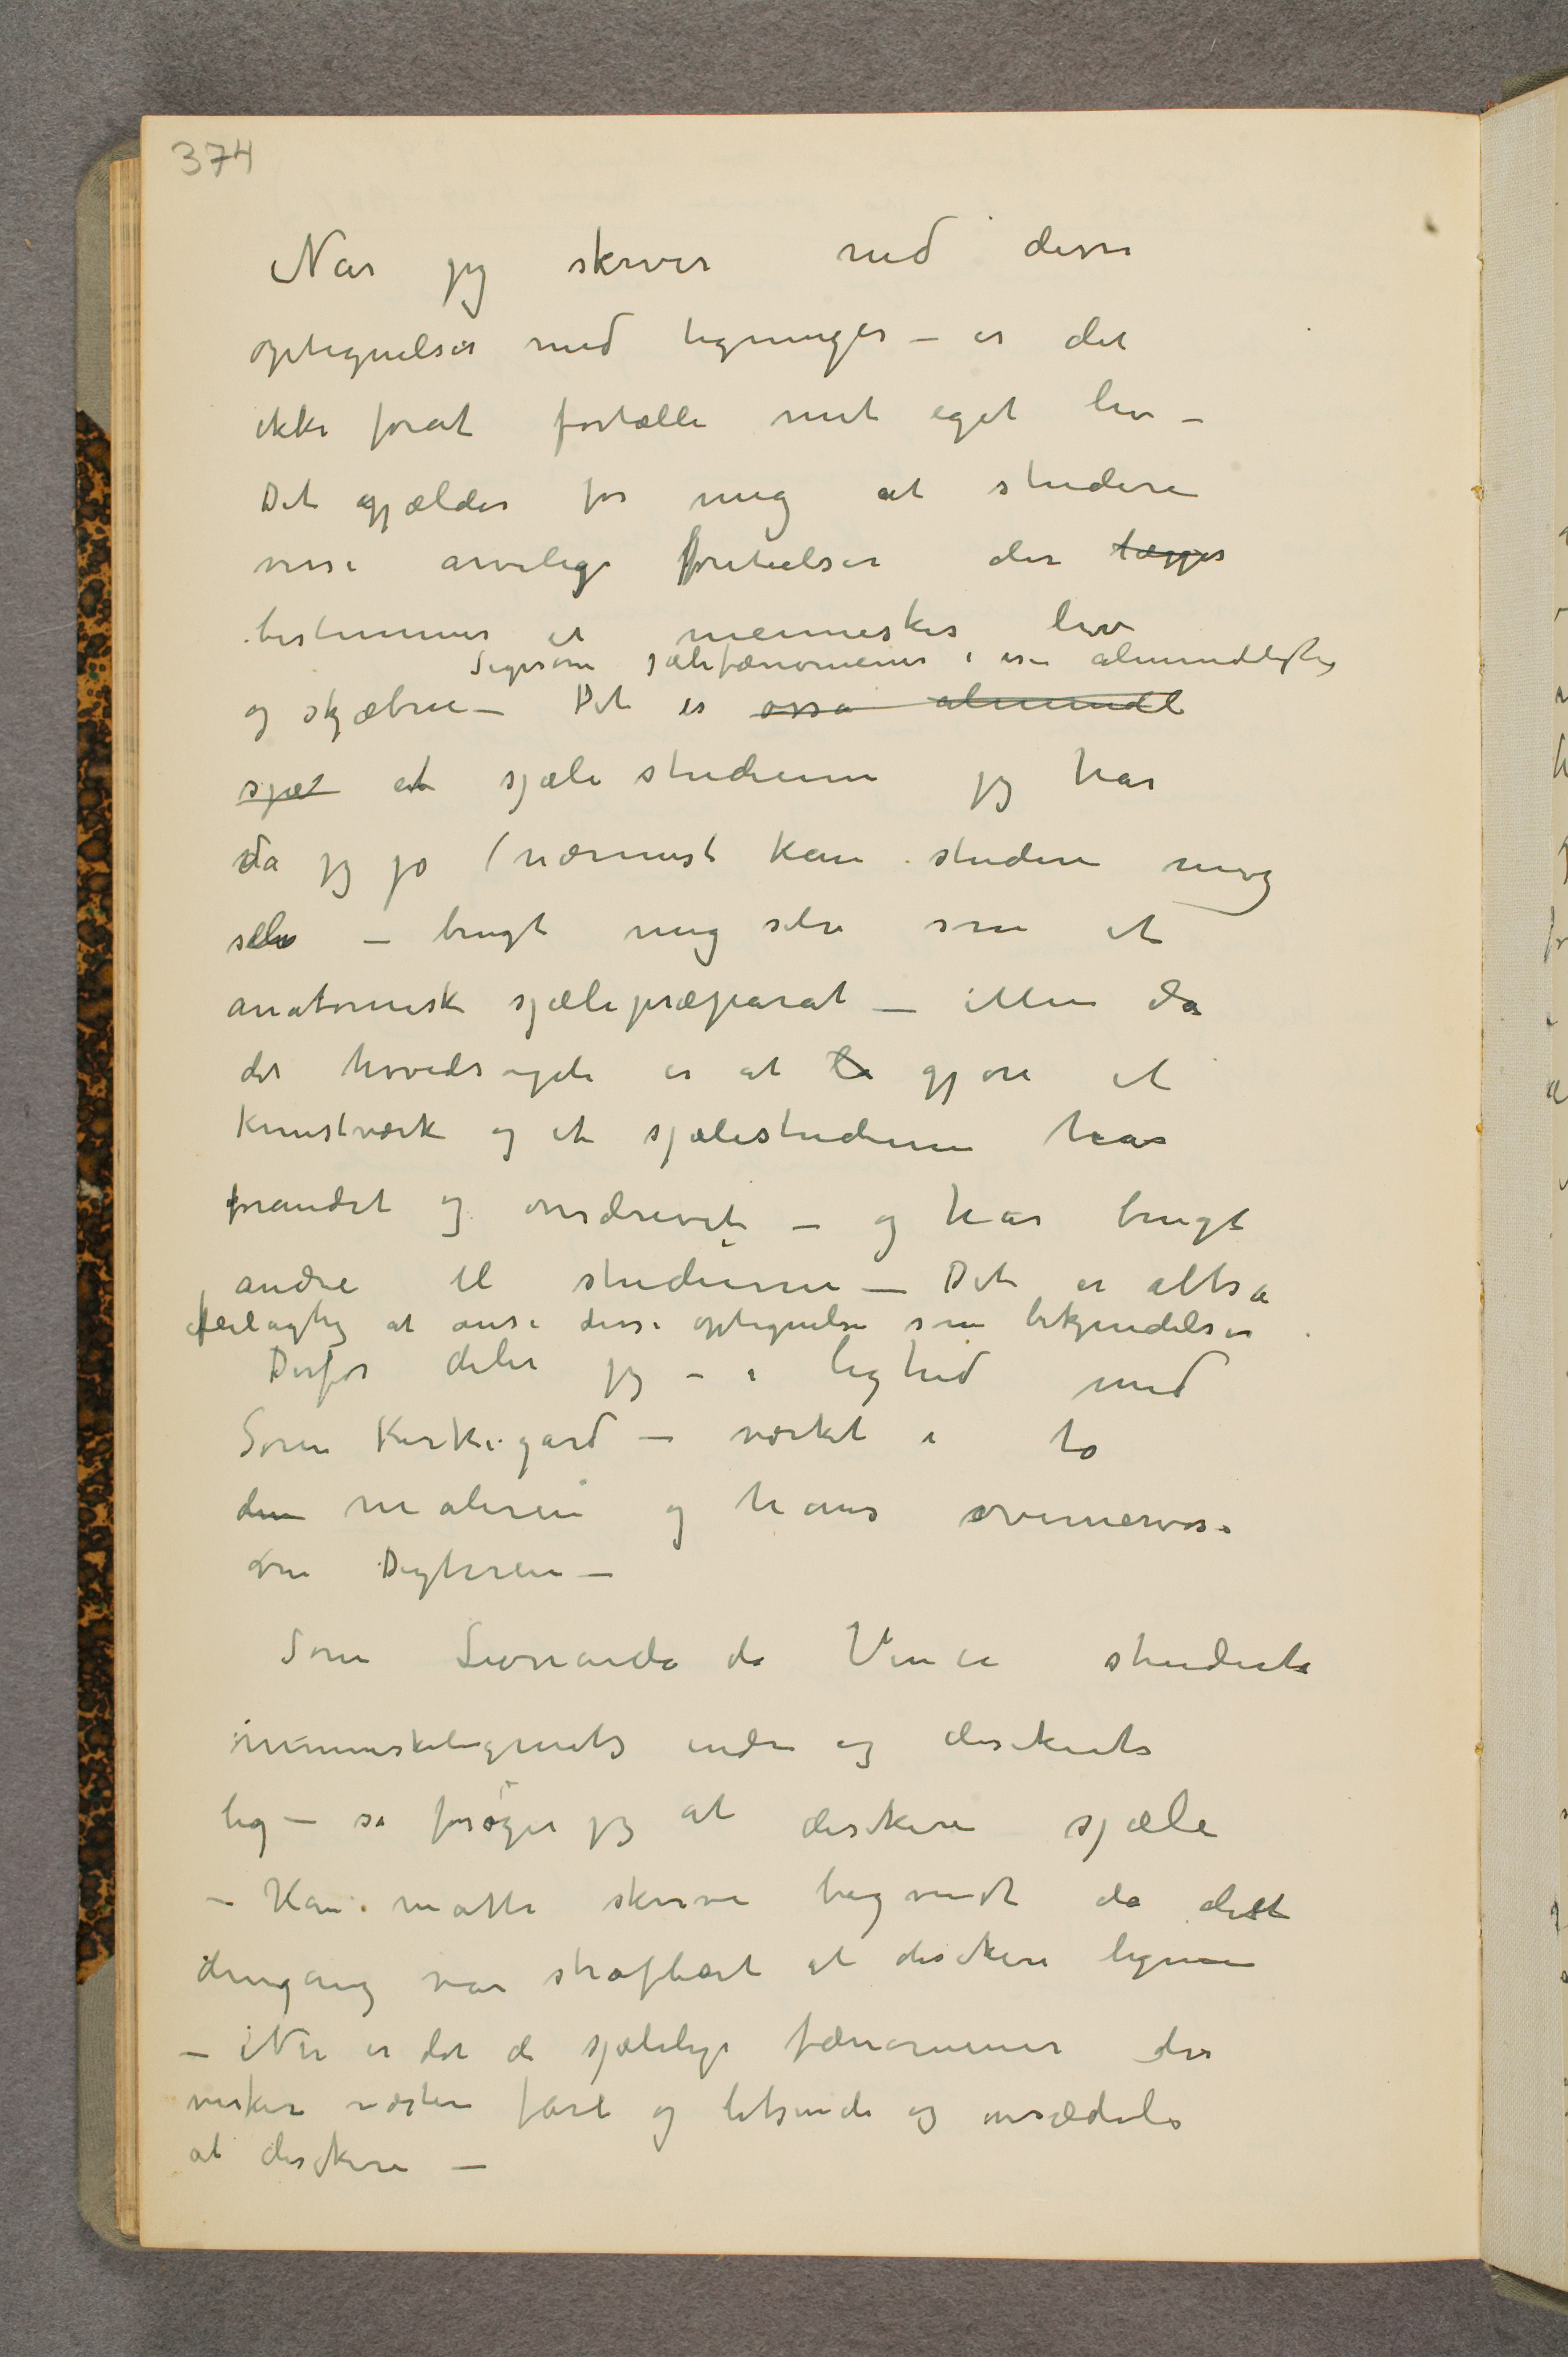 374
Når jeg skriver ned disse
optegnelser med tegninger – er det
ikke forat fortælle mit eget liv –
Det gjælder for mig at studere
visse arvelige foreteelser der lægger
bestemmer et menneskes liv
Ligesom sælefænomener i sin almindelighed
og skjæbne – Det er osså almindl
sjæl et sjæle studium jeg har
da jeg jo nærmest kan studere mig
selv – brugt mig selv som et
anatomisk sjælepræparat – Men da
det hovedsagelig er at la gjøre et
kunstværk og et sjælestudium har
forandret og overdrevet – og har brugt
andre til studierne – Det er altså
feilagtig at anse disse optegnelser som bekjendelser
Derfor deler jeg – i lighed med
Søren Kirkegård – værket i to
den maleren og hans overnervøse
ven Digteren –
Som Leonarda da Vinci studerte
menneskelegemets indre og disikerte
lig – så forsøger jeg at disikere sjæle
– Han måtte skrive bagvendt da det
dengang var strafbart at disikere legeme
– Nu er det de sjælelige fænomener der
virker næsten farl og letsindi og usædeli
at disikere –